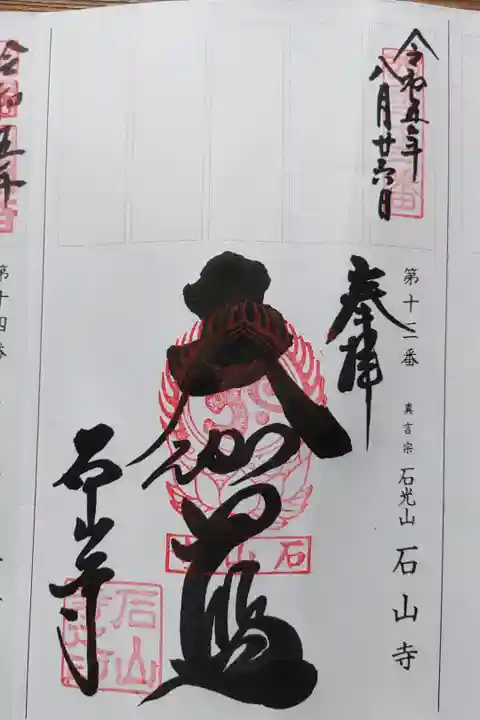 令和五年
八月廿六日
第十三番 真言宗 石光山 石山寺
奉拝
大伽藍
石山寺
石山寺
石山
令和五年
第十四番